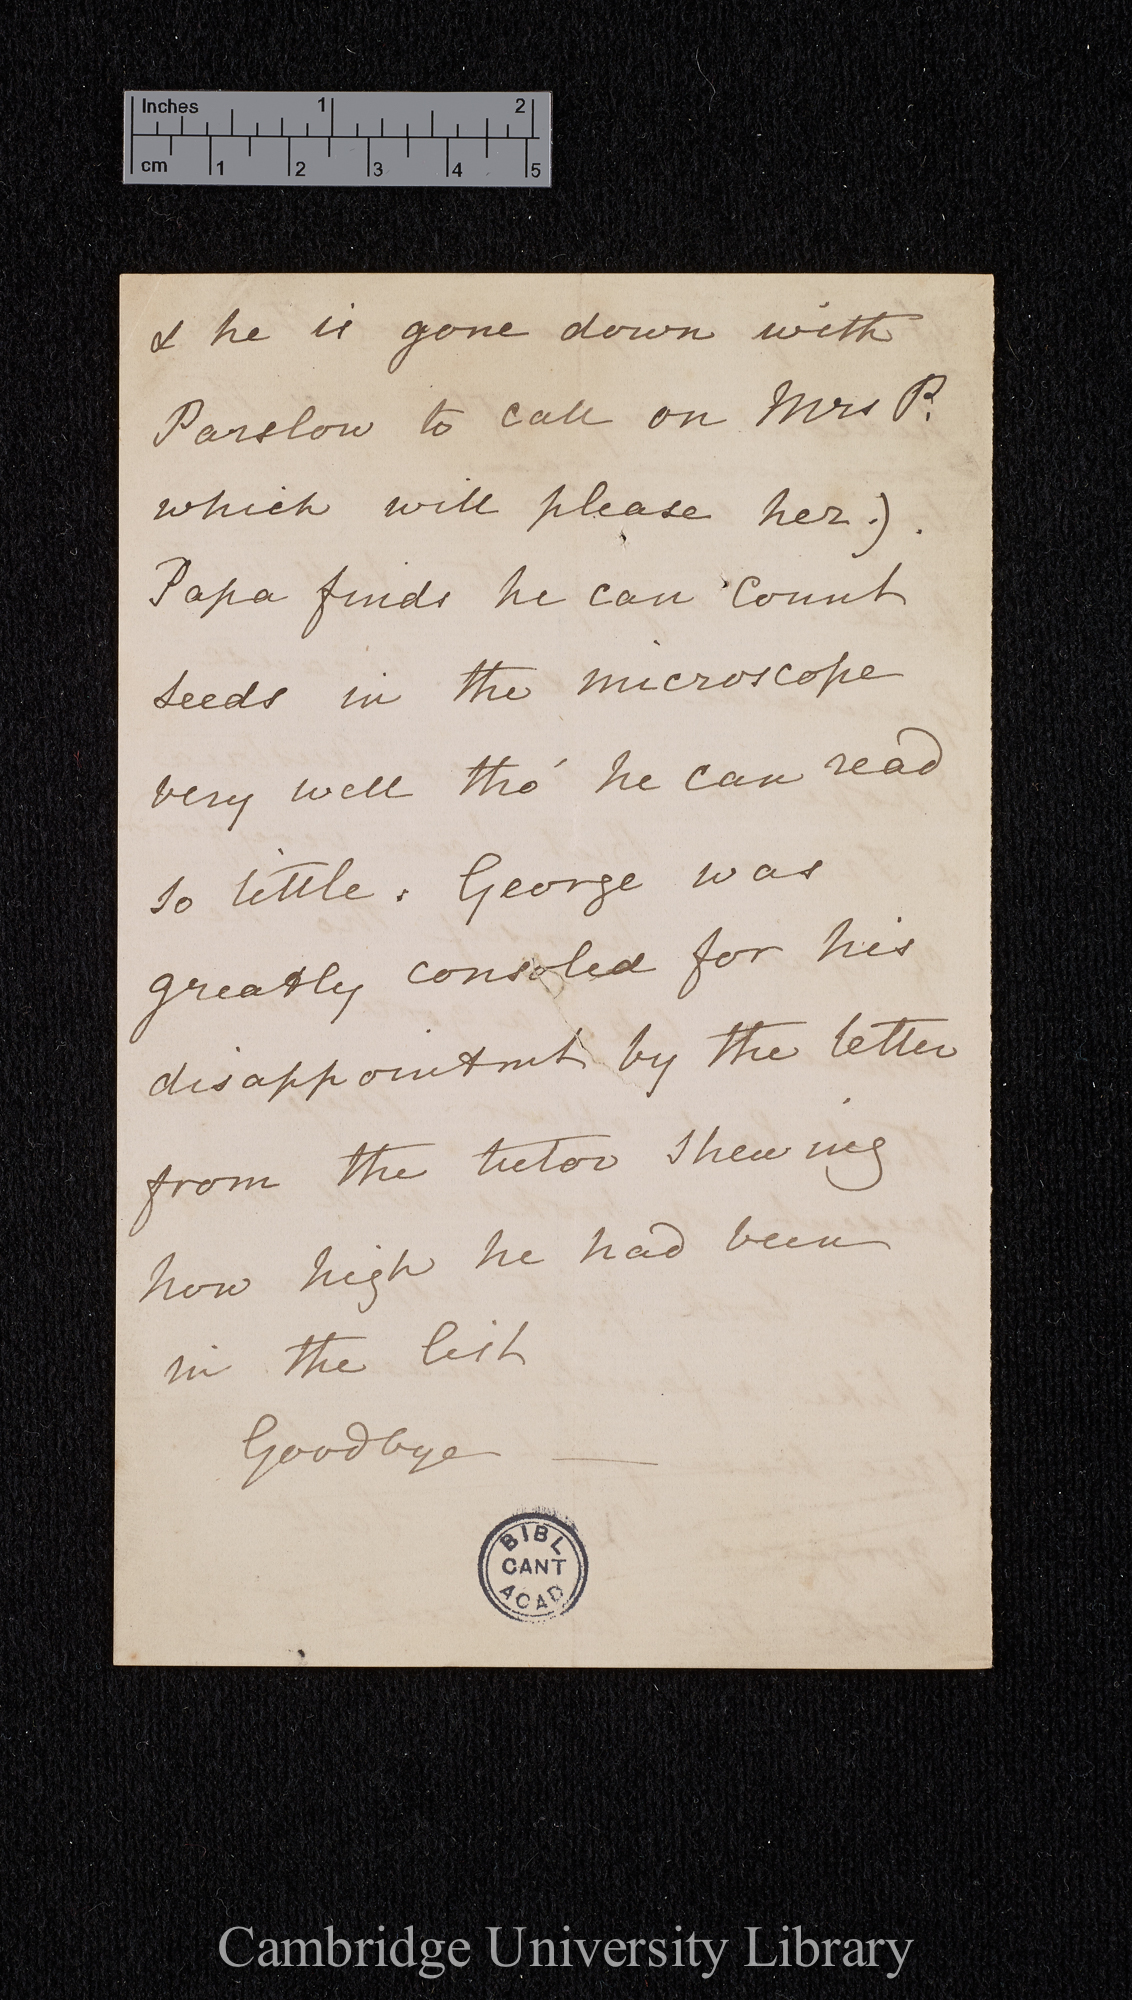 Inches 1 2
cm 1 2 3 4 5
& he is gone down with
Parslow to call on Mrs P.
which will please her.).
Papa finds he can count
seeds in the microscope
very well tho' he can read
so little. George was
greatly consoled for his
disappointmt by the letter
from the tutor shewing
how high he had been
in the list
Goodbye —
BIBL
CANT
ACAD
Cambridge University Library